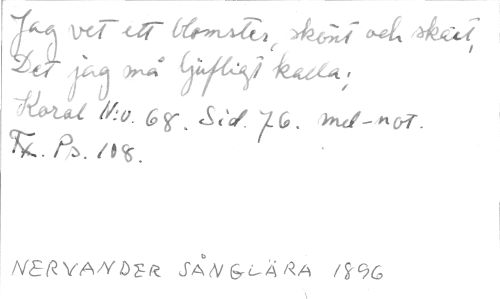 Jag vet ett blomster, skönt och skärt,
Det jag må ljufligt kalla;
Koral N:o. 68. Sid. 76. mel-not.
Tx. Ps. 108.
NERVANDER SÅNGLÄRA 1896